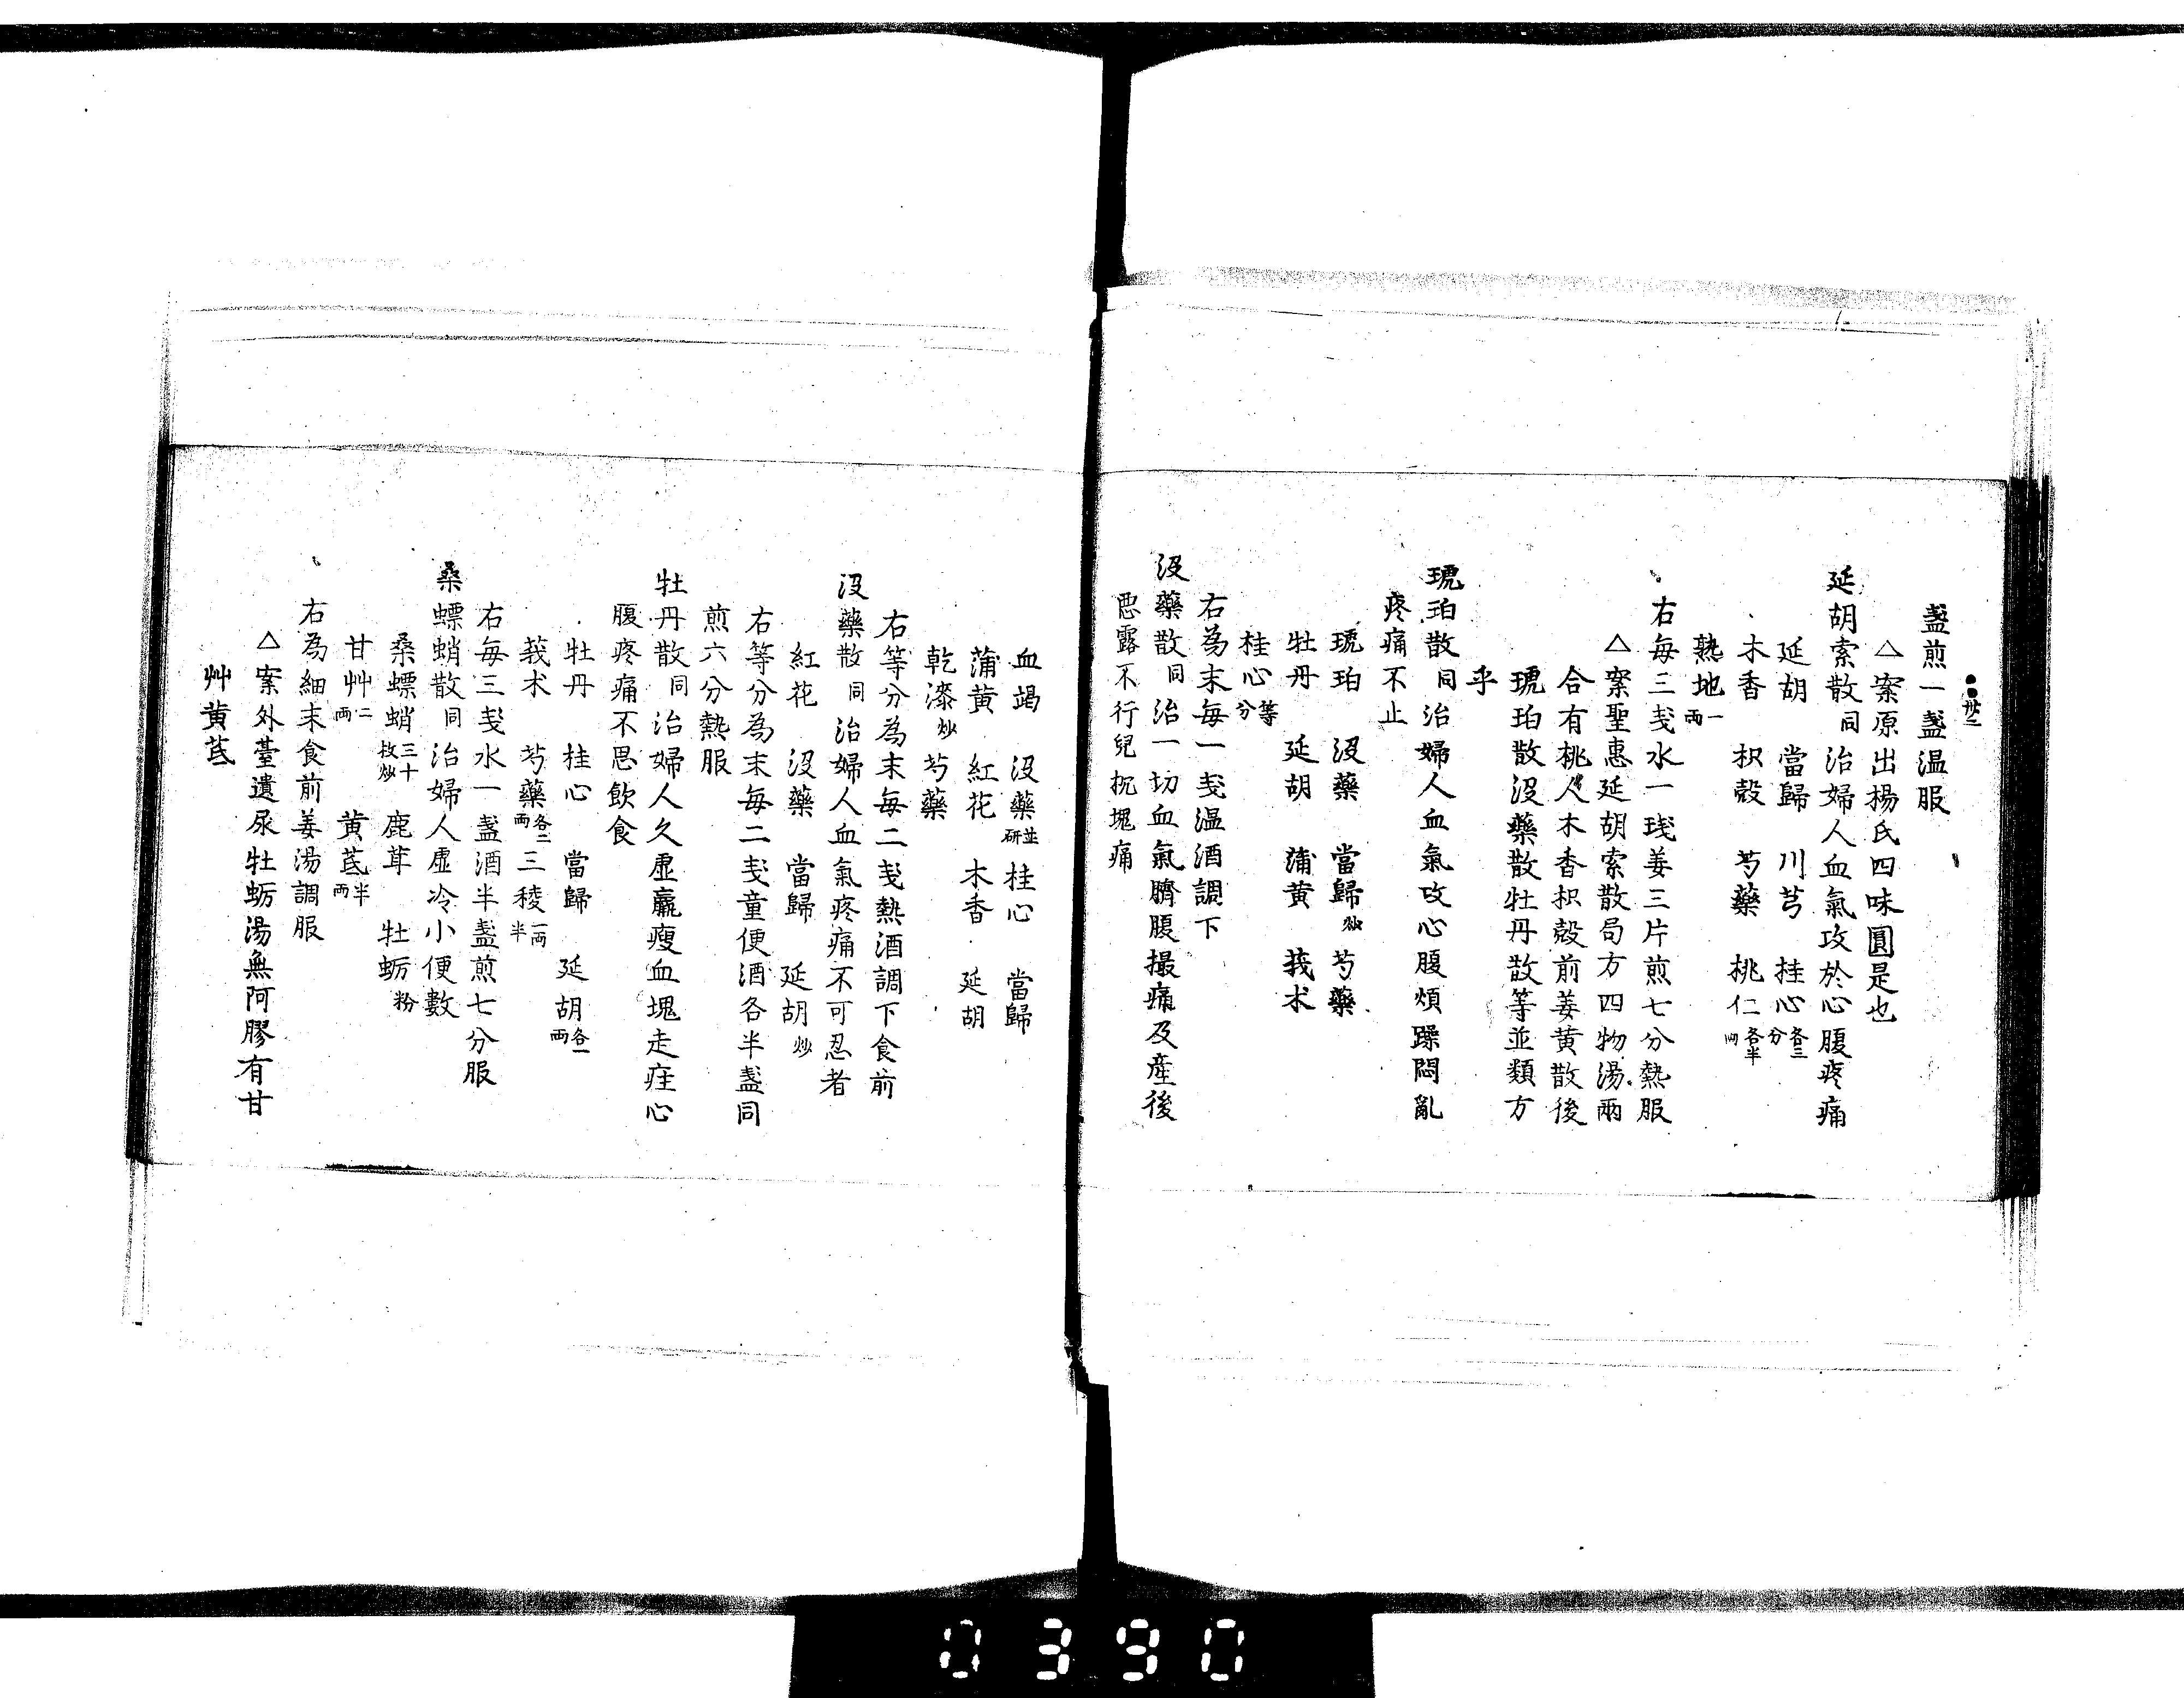 卅二
盞煎一盞温服
△案原出楊氏四味圓是也
延胡索散同治婦人血氣攻於心腹疼痛
延胡 當歸 川芎 桂心各三分
木香 枳殼 芍藥 桃仁各半両
熟地一両
右毎三戔水一琖姜三片煎七分熱服
△案聖惠延胡索散局方四物湯兩
合有桃人木香枳殼前姜黄散後
琥珀散沒藥散牡丹散等並類方
乎
琥珀散同治婦人血氣攻心腹煩躁悶亂
疼痛不止
琥珀 沒藥 當歸炒 芍藥
牡丹 延胡 蒲黄 莪朮
桂心等分
右為末毎一戔温酒調下
沒藥散同治一切血氣臍腹撮痛及産後
惡露不行兒枕塊痛
血竭 沒藥並研 桂心 當歸
蒲黄 紅花 木香 延胡
乾漆炒 芍藥
右等分為末毎二戔熱酒調下食前
沒藥散同治婦人血氣疼痛不可忍者
紅花 沒藥 當歸 延胡炒
右等分為末毎二戔童便酒各半盞同
煎六分熱服
牡丹散同治婦人久虛羸瘦血塊走疰心
腹疼痛不思飲食
牡丹 桂心 當歸 延胡各一両
莪朮 芍藥各二両 三稜一両半
右毎三戔水一盞酒半盞煎七分服
桑螵蛸散同治婦人虛冷小便數
桑螵蛸三十枚炒 鹿茸 牡蛎粉
甘艸二両 黄芪半両
右為細末食前姜湯調服
△案外臺遺尿牡蛎湯無阿膠有甘
艸黄芪
0390